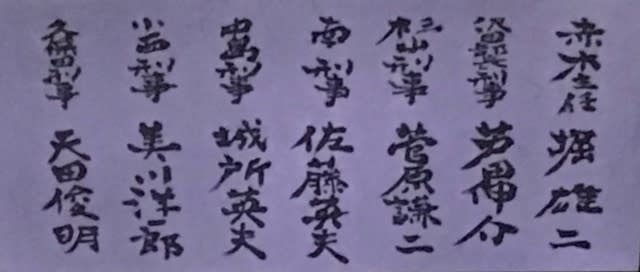 赤木主任 堀雄二
沢田部長刑事 芦田伸介
杉山刑事 菅原謙二
南刑事 佐藤英夫
中島刑事 城所英夫
小西刑事 美川洋一郎
久保田刑事 天田俊明